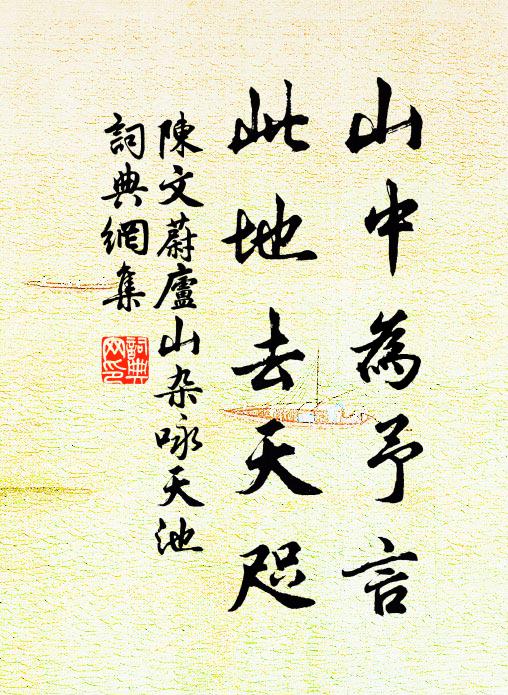 山中為予言
此地去天咫
陳文蔚廬山杂咏天池
詞典網集
詞典网印